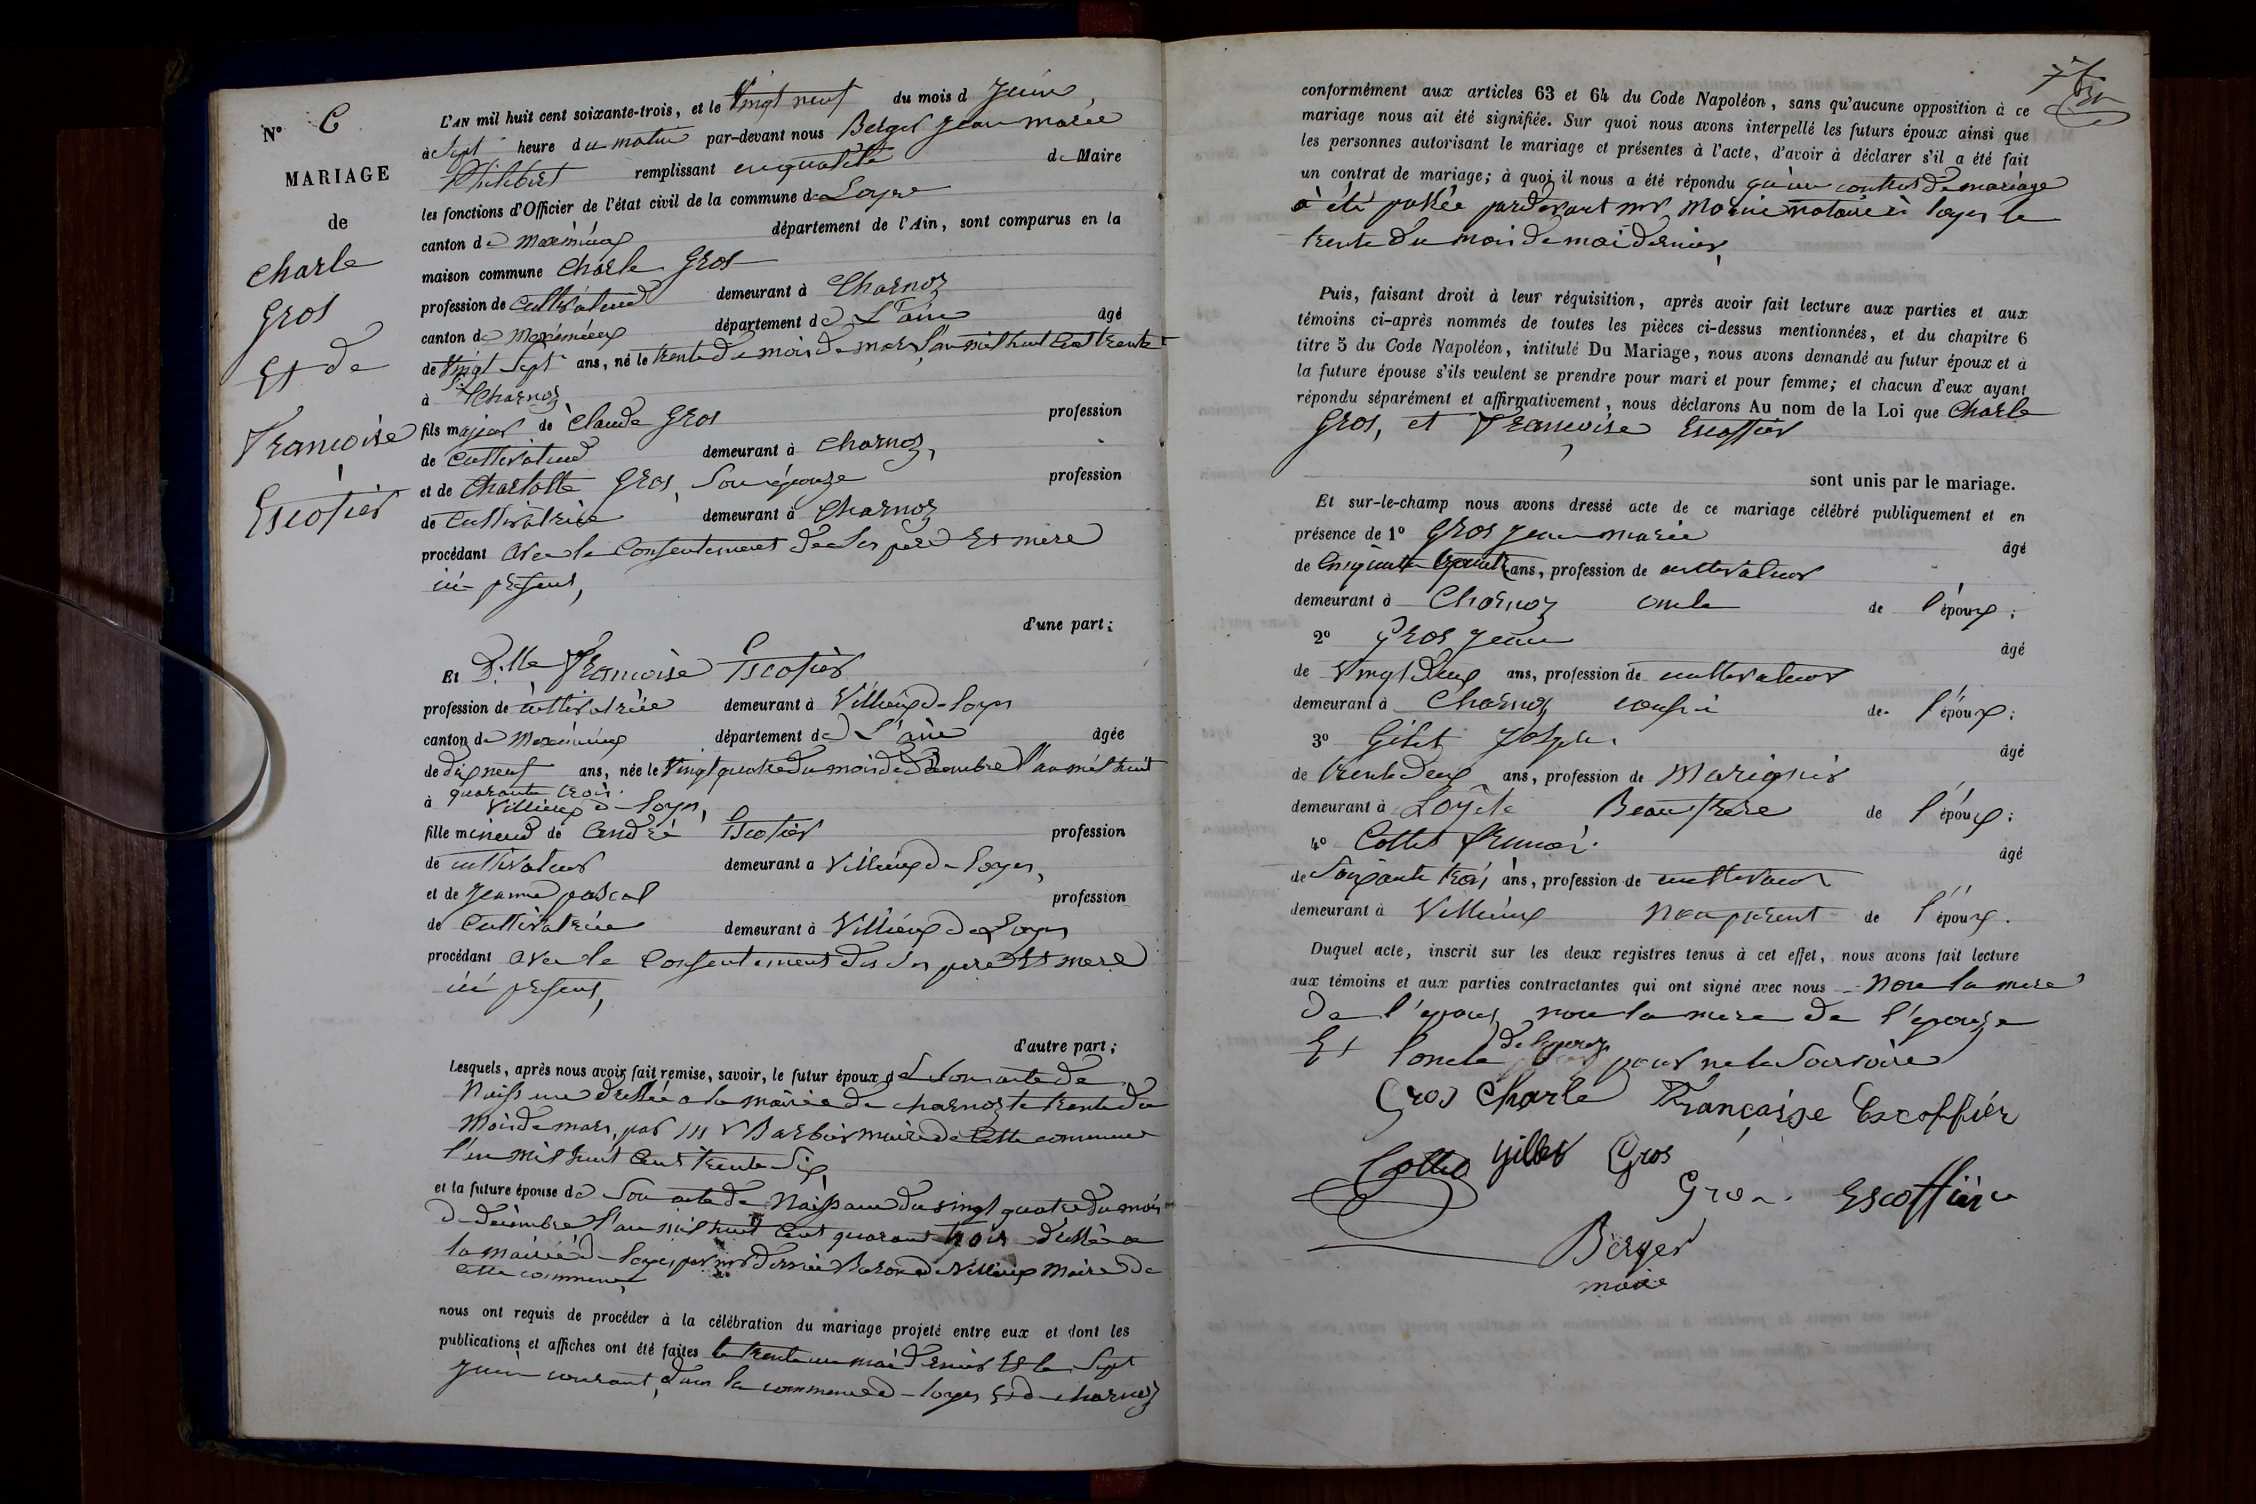 N° 6
MARIAGE
de
Charle
Gros
Et de
Francoise
Escofier
L'AN mil huit cent soixante-trois, et le Vingt neuf du mois d Juin,
à Sept heure du matin par-devant nous Berger Jean marie
Philibert remplissant en qualité de Maire
les fonctions d'Officier de l'état civil de la commune de Loyes
canton de Meximieux département de l'Ain, sont comparus en la
maison commune Charle Gros
profession de Cultivateur demeurant à Charnoz
canton de Meximieux département de L'ain âgé
de Vingt Sept ans, né le trente du mois de mars l'an mil huit Cent trente
Six
à Charnoz,
fils majeur de Claude Gros profession
de Cultivateur demeurant à Charnoz,
et de Charlotte Gros, Son épouze profession
de Cultivatrice demeurant à Charnoz
procédant avec le Consentement de Ses père Et mère
ici présent,
d'une part;
Et D.lle Francoise Escofier
profession de cultivatrice demeurant à Villieux de Loyes
canton de Meximieux département de L'ain âgée
de dix neuf ans, née le Vingt quatre du mois de Décembre l'an mil huit
quarante trois.
à Villieux de Loyes,
fille mineur de André Escofier profession
de cultivateur demeurant a Villieux de Loyes,
et de Jeanne pascal profession
de Cultivatrice demeurant à Villieux de Loyes
procédant avec le Consentement des Ses pere Et mere
ici présent,
d'autre part;
Lesquels, après nous avoir fait remise, savoir, le futur époux de Son acte de
Naissance dressée a la mairie de charnoz le trente du
mois de mars, par mr Barbier maire de Cette commune
l'an mil huit Cent trente Six,
et la future épouse de Son acte de Naissance du vingt quatre du mois
de decembre l'an mil huit Cent quarante trois dressée a
la mairie de Loyes, par mr Baron de Villieux Maire de
Cette commune,
nous ont requis de procéder à la célébration du mariage projeté entre eux et dont les
publications et affiches ont été faites le trente un mai dernier Et le Sept
Juin courant, dans la commune de Loyes Et de charnoz
conformément aux articles 63 et 64 du Code Napoléon, sans qu'aucune opposition à ce
mariage nous ait été signifiée. Sur quoi nous avons interpellé les futurs époux ainsi que
les personnes autorisant le mariage et présentes à l'acte, d'avoir à déclarer s'il a été fait
un contrat de mariage; à quoi il nous a été répondu qu'un contrat de mariage
à été passée pardevant mr notaire à loyes le
trente du mois de mai dernier,
Puis, faisant droit à leur réquisition, après avoir fait lecture aux parties et aux
témoins ci-après nommés de toutes les pièces ci-dessus mentionnées, et du chapitre 6
titre 5 du Code Napoléon, intitulé Du Mariage, nous avons demandé au futur époux et à
la future épouse s'ils veulent se prendre pour mari et pour femme; et chacun d'eux ayant
répondu séparément et affirmativement, nous déclarons Au nom de la Loi que Charle
Gros, et Francoise Escoffier
sont unis par le mariage.
Et sur-le-champ nous avons dressé acte de ce mariage célébré publiquement et en
présence de 1° Gros Jean marie âgé
de Cinquante ans, profession de cultivateur
demeurant à Charnoz oncle de l'époux;
2° Gros Jean âgé
de Vingt Deux ans, profession de cultivateur
demeurant à Charnoz cousin de l'époux;
3° Joseph. âgé
de trente Deux ans, profession de Marinier
demeurant à Beau frere de l'époux;
4° Collet âgé
de Soixante trois ans, profession de cultivateur
demeurant à Villieux Non parent de l'époux.
Duquel acte, inscrit sur les deux registres tenus à cet effet, nous avons fait lecture
aux témoins et aux parties contractantes qui ont signé avec nous Non la mere
De l'époux non la mere de l'épouze
Et l'oncle de l'epoux pour ne le Savoir
Gros Charle Françoise Escoffier
Collet Gillet Gros
Gros Escoffier
Berger
maire